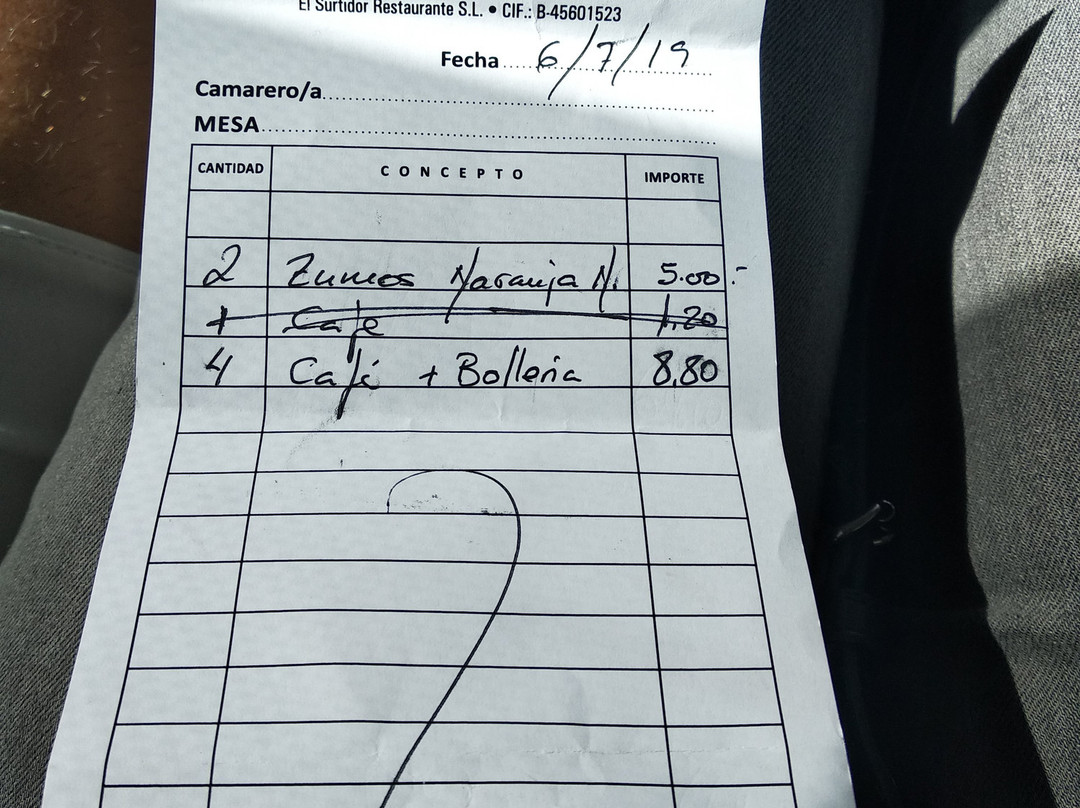 El Surtidor Restaurante S.L. • CIF.: B-45601523
Fecha 6/7/19
Camarero/a
MESA
CANTIDAD CONCEPTO IMPORTE
2 Zumos Naranja N. 5.00.-
1 Café 1,20
4 Café + Bolleria 8,80